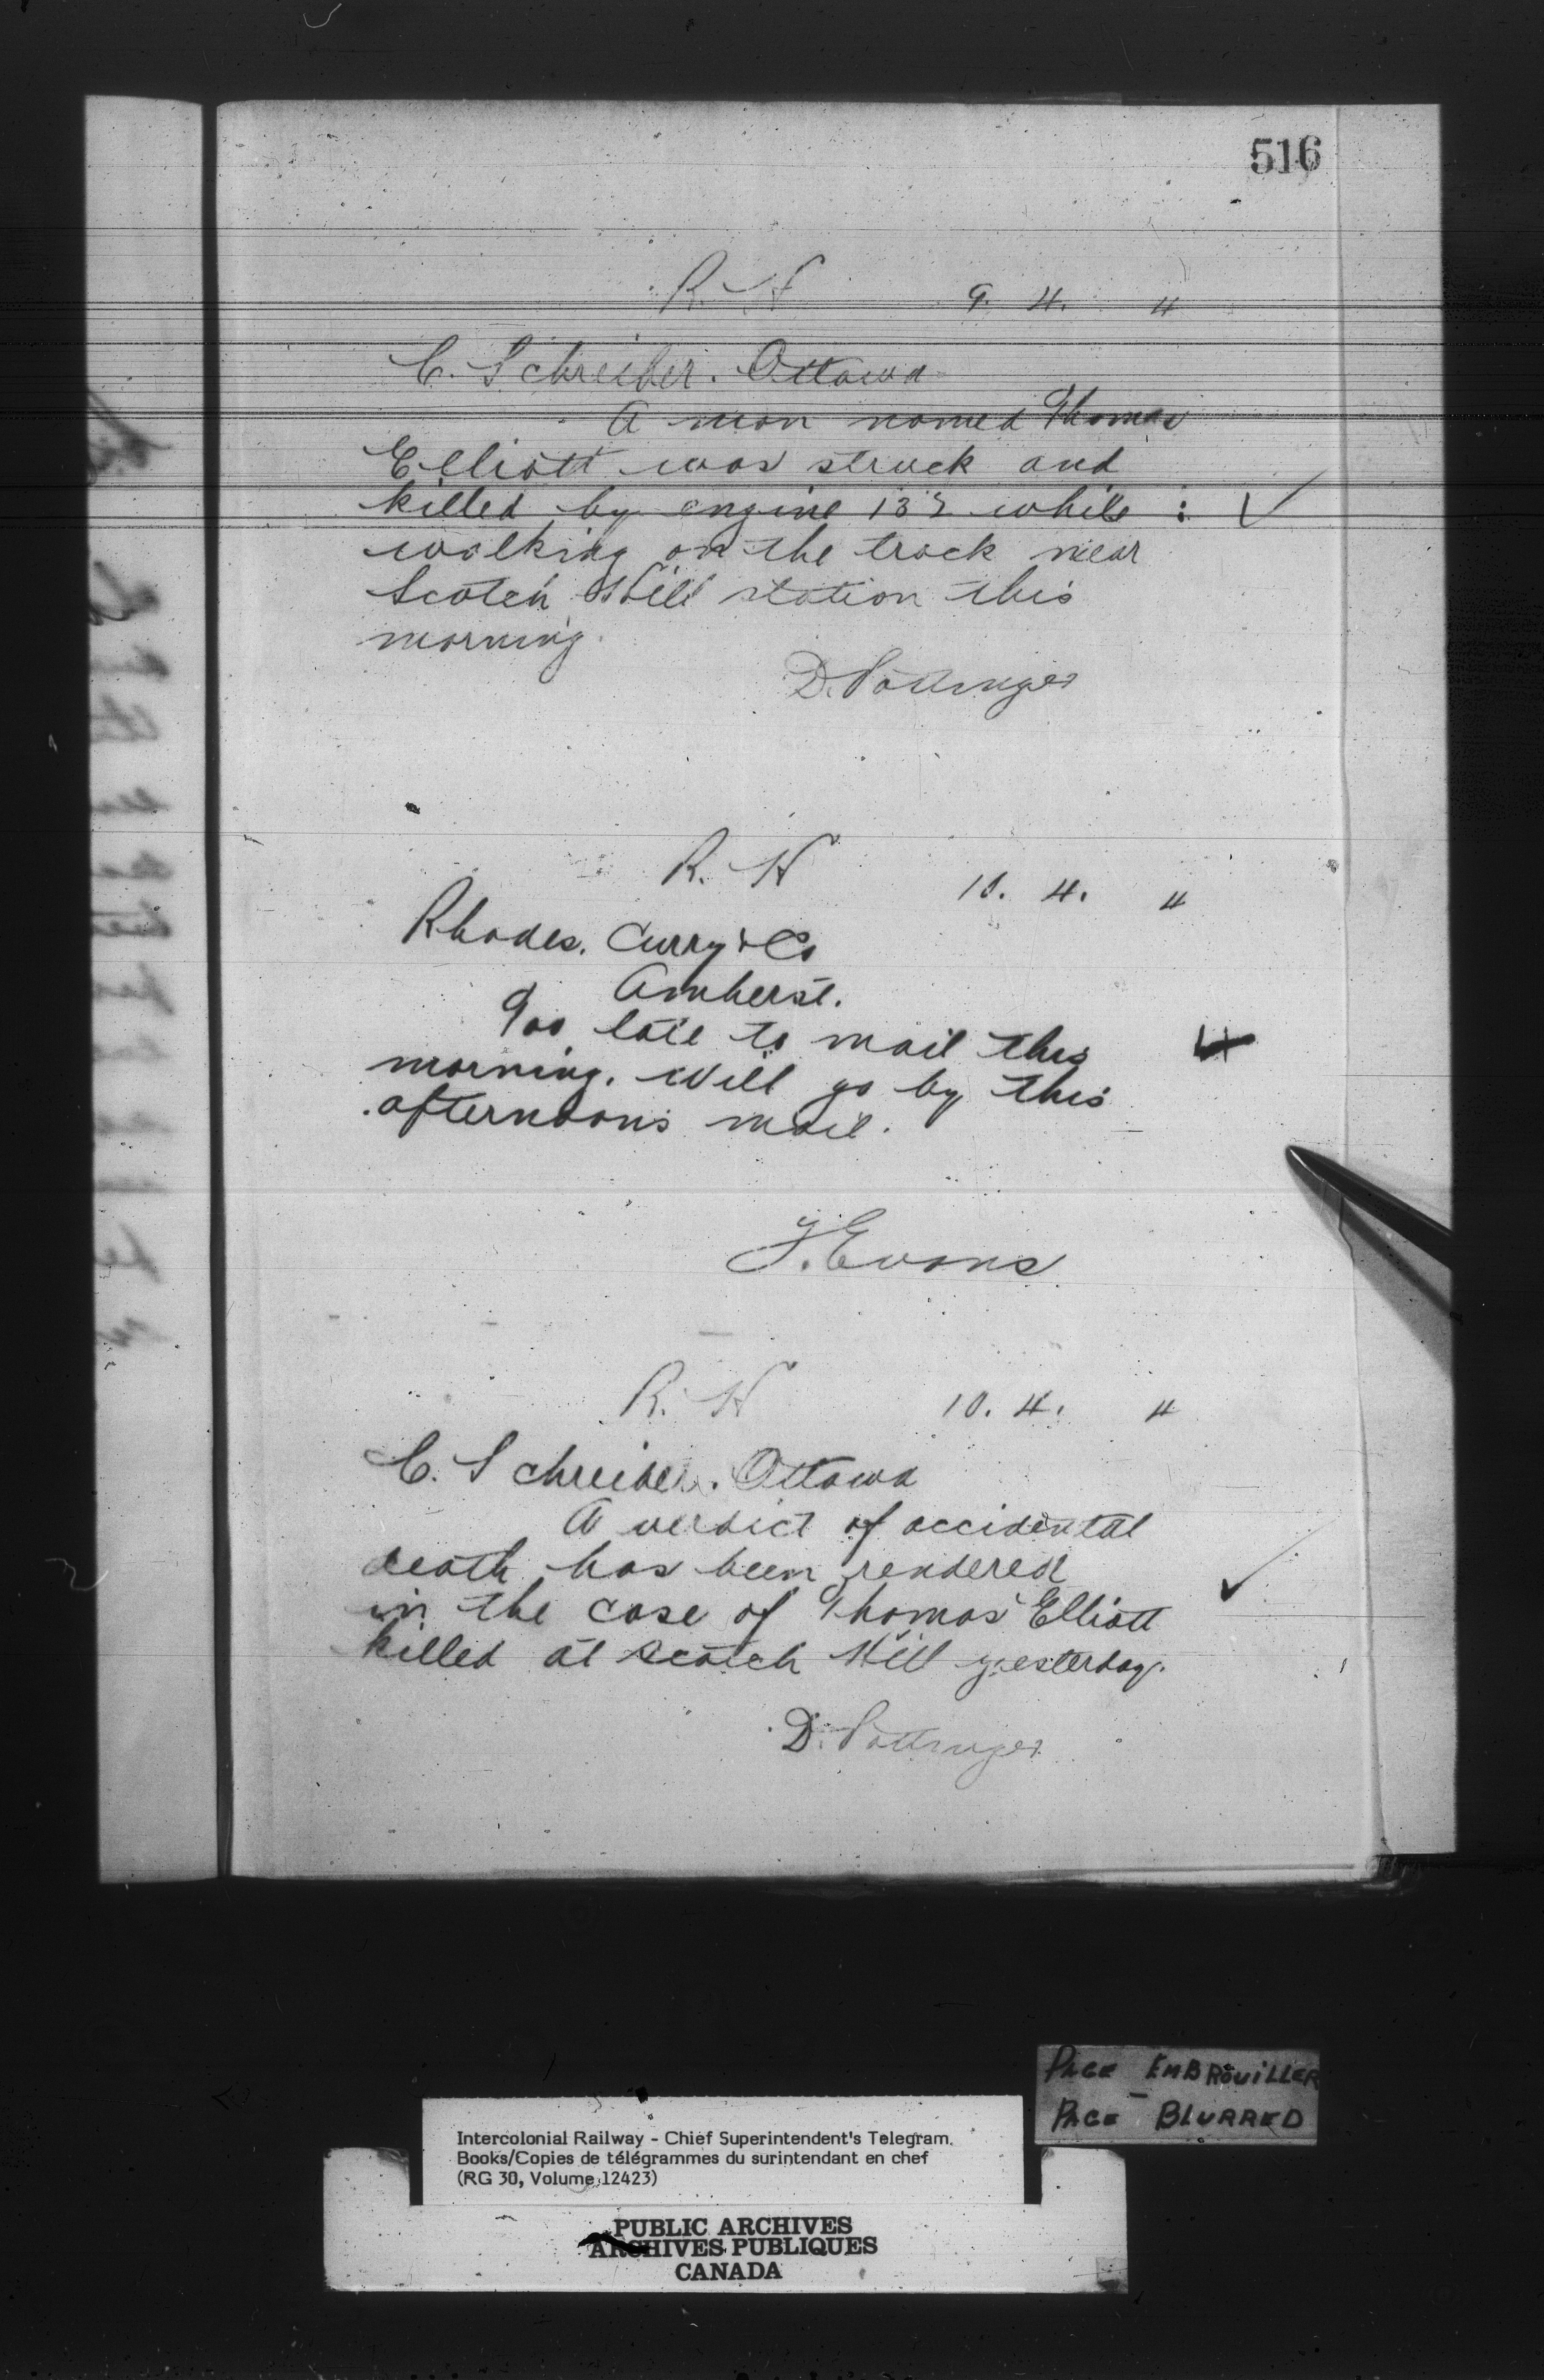 516
R. H 9. 4. "
C. Schreiber. Ottawa
A man named Thomas
Elliott was struck and
killed by engine 132 while :
walking on the track near
Scotch Hill station this
morning.
D. Pottinger
R. H 10. 4. "
Rhodes. Curry & Co
Amherst.
Too late to mail this
morning. Will go by this
afternoons mail.
T. Evans
R. H 10. 4. "
C. Schreiber. Ottawa
A verdict of accidental
death has been rendered
in the case of Thomas Elliott
killed at Scotch Hill yesterday.
D. Pottinger
PAGE EMBROUILLER
PAGE BLURRED
Intercolonial Railway - Chief Superintendent's Telegram.
Books/Copies de télégrammes du surintendant en chef
(RG 30, Volume 12423)
PUBLIC ARCHIVES
ARCHIVES PUBLIQUES
CANADA